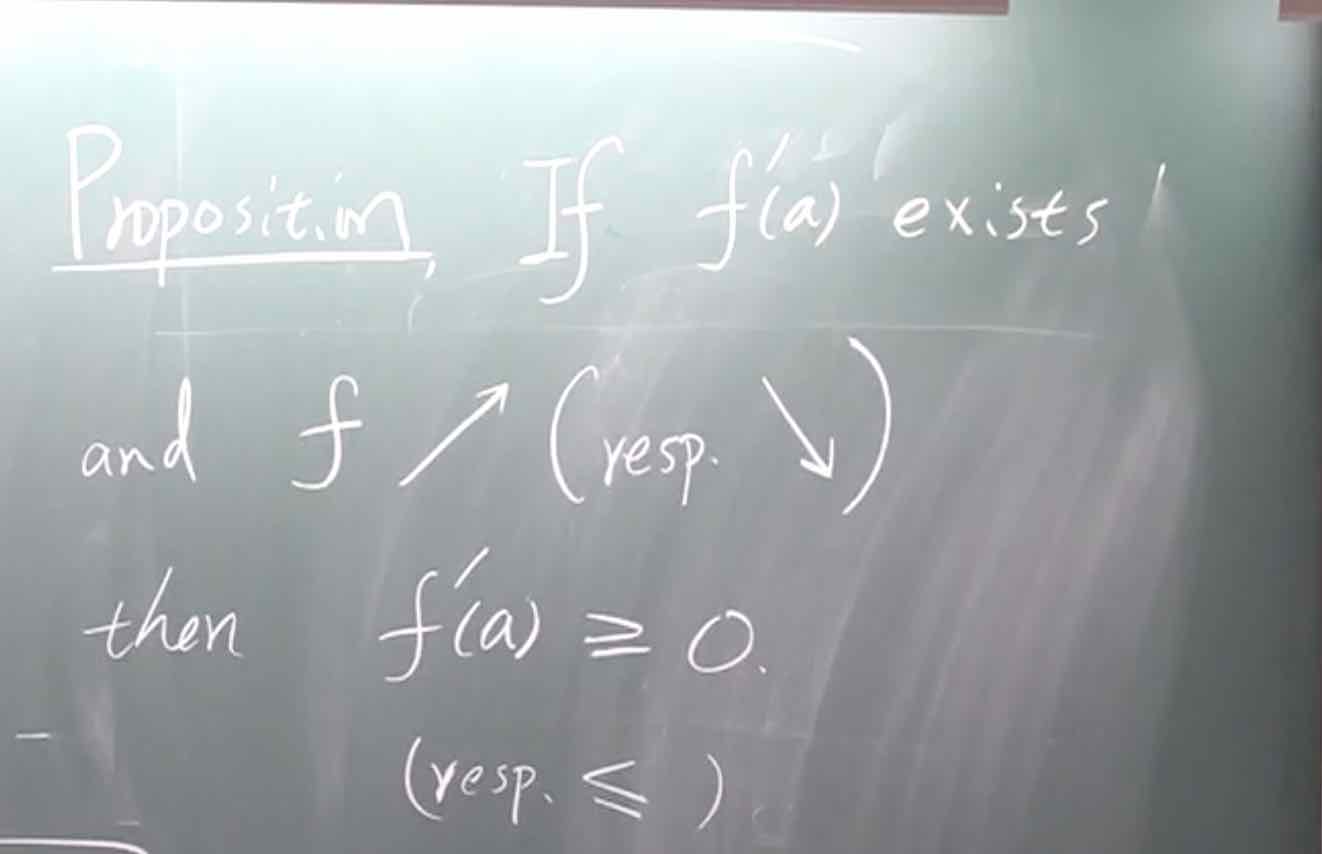 Proposition, If f'(a) exists
and f ↗ (resp. ↘)
then f'(a) ≥ 0.
(resp. ≤ )